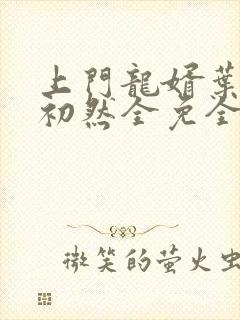 上門龍婿葉
初然全免全
微笑的萤火虫